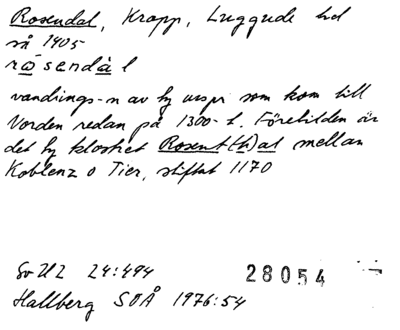 Rosendal, Kropp, Luggude hd
så 1405
rωsendàl
vandrings-n av ty urspr som kom till
Norden redan på 1300-t. Förebilden är
det ty klostret Rosent(h)al mellan
Koblenz o Trier, stiftat 1170
SvUL 24:494
28054
Hallberg SOÅ 1976:54